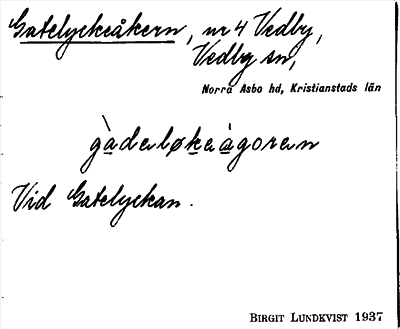 Gatelyckeåkern, nr 4 Vedby,
Vedby sn,
Norra Åsbo hd, Kristianstads län
gàdeløkeàgoren
Vid Gatelyckan.
BIRGIT LUNDKVIST 1937